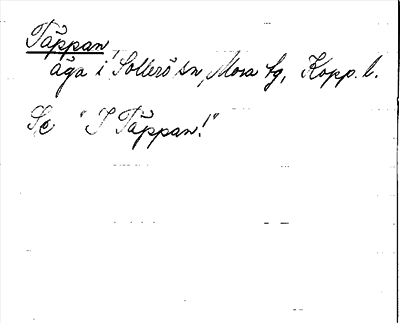 Täppan,
äga i Sollerö sn, Mora tg, Kopp. l.
Se "I Täppan!"